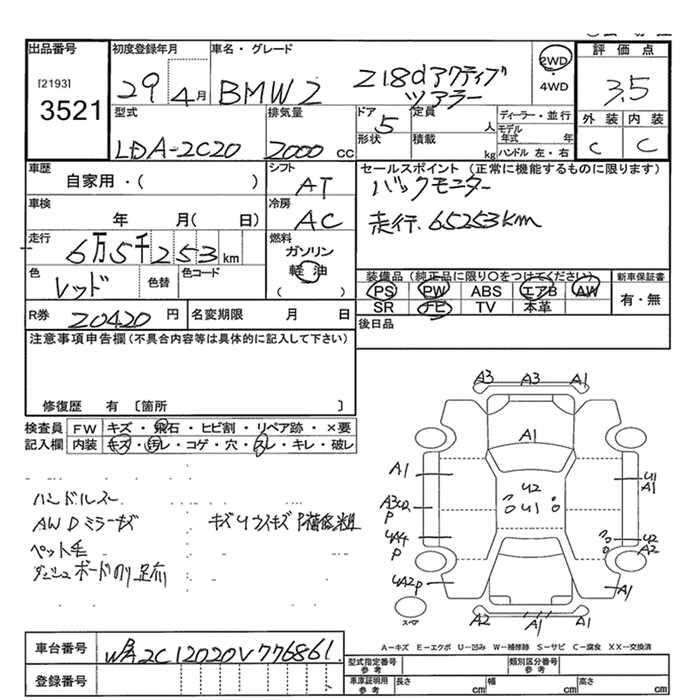 出品番号
[2193]
3521
初度登録年月
29 4月
車名・グレード
BMW 2 218dアクティブ
ツアラー
2WD
・
4WD
評価点
3.5
外装 内装
C C
型式
LDA-2C20
排気量
2000 cc
ドア 5
形状
定員 人
積載 kg
ディーラー・並行
モデル年式 年
ハンドル 左・右
車歴
自家用・( )
シフト
AT
車検
年 月( 日)
冷房
AC
走行
6万5千253km
燃料
ガソリン
軽油
( )
色
レッド
色替
色コード
セールスポイント (正常に機能するものに限ります)
バックモニター
走行.65253km
装備品(純正品に限り○をつけてください)
PS PW ABS エアB AW
SR ナビ TV 本革
新車保証書
有・無
R券 20420 円
名変期限 月 日
後日品
注意事項申告欄(不具合内容等は具体的に記入して下さい)
修復歴 有 〔箇所 〕
検査員
記入欄
FW キズ・飛石・ヒビ割・リペア跡・×要
内装 キズ・汚レ・コゲ・穴・スレ・キレ・破レ
ハンドルスレ
AWDミラーキズ
ペット毛
A3 A3 A1
A1
A1
U2
U1
A3U2
P
U1
A1
U4A4
P
U2
A2
U2A2P
A1
A2
A1
A1
スペア
A−キズ E−エクボ U−凹み W−補修跡 S−サビ C−腐食 XX−交換済
車台番号
WBA2C12020V776861
登録番号
型式指定番号
参考
類別区分番号
参考
車庫証明用
参考
長さ cm
幅 cm
高さ cm